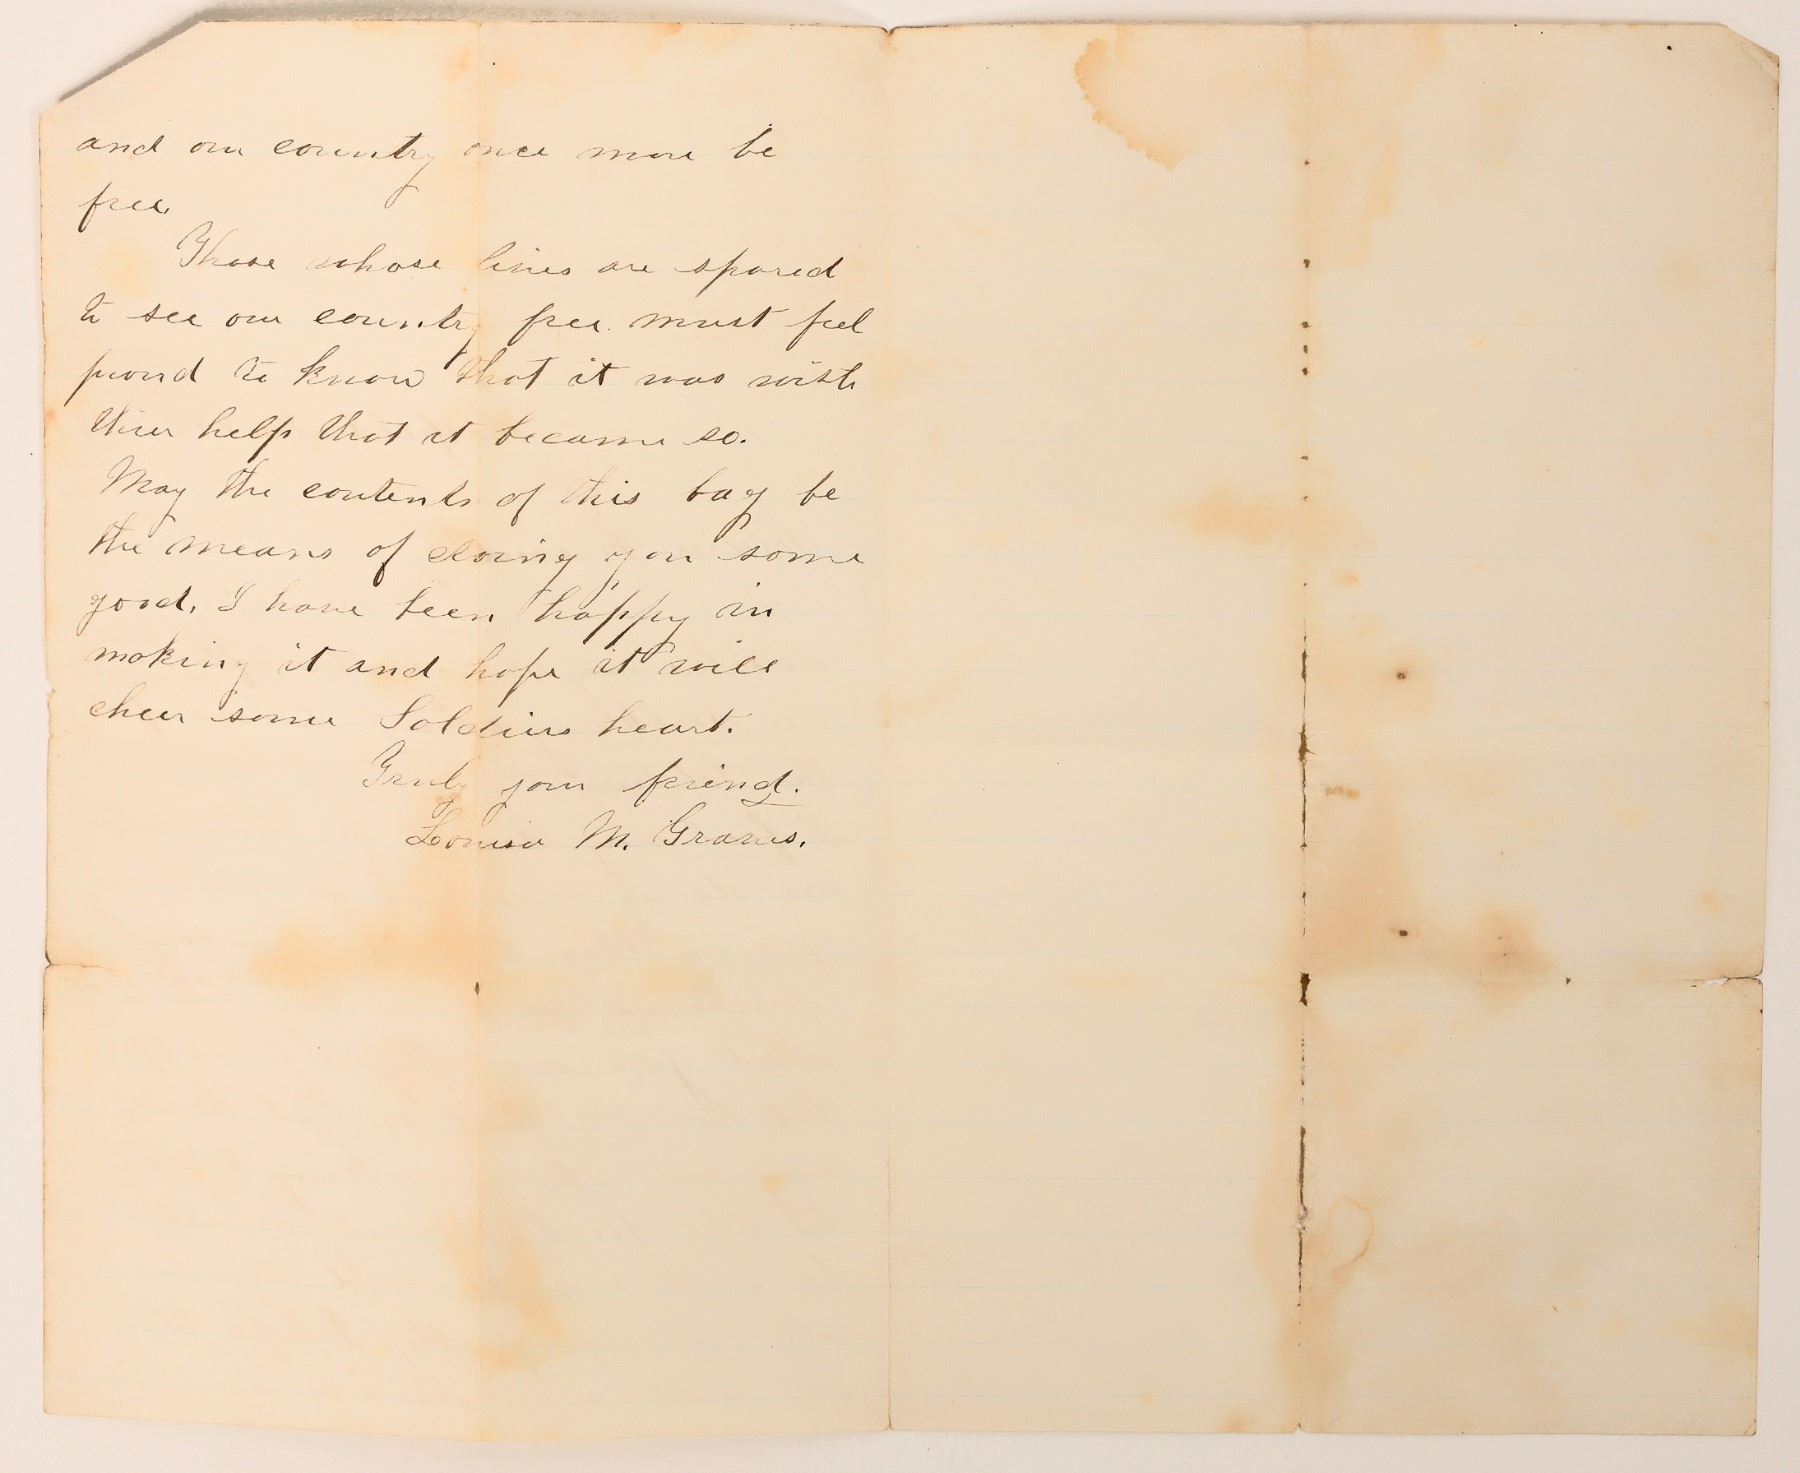 and our country once more be
free.
Those whose lives are spared
to see our country free must feel
proud to know that it was with
thier help that it became so.
May the contents of this bag be
the means of doing you some
good. I have been happy in
making it and hope it will
cheer some Soldiers heart.
Truly your friend.
Louisa M. Graves.